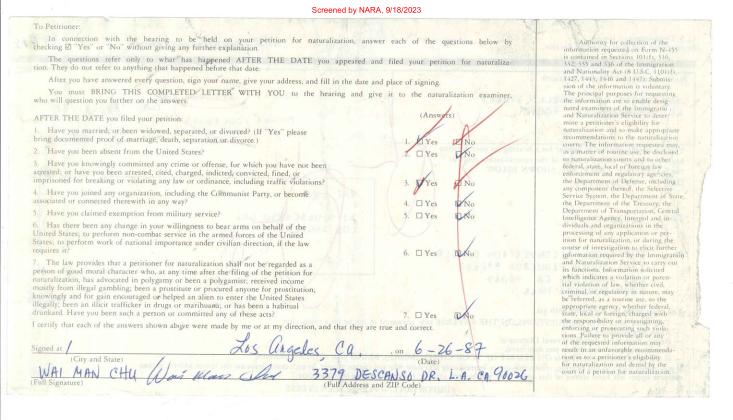 Screened by NARA, 9/18/2023
To Petitioner:
In connection with the hearing to be held on your petition for naturalization, answer each of the questions below by
checking ☑ "Yes" or "No" without giving any further explanation.
The questions refer only to what has happened AFTER THE DATE you appeared and filed your petition for naturaliza-
tion. They do not refer to anything that happened before that date.
After you have answered every question, sign your name, give your address, and fill in the date and place of signing.
You must BRING THIS COMPLETED LETTER WITH YOU to the hearing and give it to the naturalization examiner,
who will question you further on the answers.
(Answers)
AFTER THE DATE you filed your petition:
1. Have you married, or been widowed, separated, or divorced? (If "Yes" please
bring documented proof of marriage, death, separation or divorce.)
1. ☑ Yes ☑ No
2. Have you been absent from the United States?
2. ☐ Yes ☑ No
3. Have you knowingly committed any crime or offense, for which you have not been
arrested; or have you been arrested, cited, charged, indicted, convicted, fined, or
imprisoned for breaking or violating any law or ordinance, including traffic violations?
3. ☑ Yes ☑ No
4. Have you joined any organization, including the Communist Party, or become
associated or connected therewith in any way?
4. ☐ Yes ☑ No
5. Have you claimed exemption from military service?
5. ☐ Yes ☑ No
6. Has there been any change in your willingness to bear arms on behalf of the
United States; to perform non-combat service in the armed forces of the United
States; to perform work of national importance under civilian direction, if the law
requires it?
6. ☐ Yes ☑ No
7. The law provides that a petitioner for naturalization shall not be regarded as a
person of good moral character who, at any time after the filing of the petition for
naturalization, has advocated in polygamy or been a polygamist; received income
mostly from illegal gambling; been a prostitute or procured anyone for prostitution;
knowingly and for gain encouraged or helped an alien to enter the United States
illegally; been an illicit trafficker in drugs or marihuana; or has been a habitual
drunkard. Have you been such a person or committed any of these acts?
7. ☐ Yes ☑ No
I certify that each of the answers shown above were made by me or at my direction, and that they are true and correct.
Signed at Los Angeles, Ca. , on 6-26-87
(City and State) (Date)
WAI MAN CHU Wai Man Chu 3379 DESCANSO DR. L.A. CA. 90026
(Full Signature) (Full Address and ZIP Code)
Authority for collection of the
information requested on Form N-455
is contained in Sections 101(f), 316,
332, 335 and 336 of the Immigration
and Nationality Act (8 U.S.C. 1101(f),
1427, 1443, 1446 and 1447). Submis-
sion of the information is voluntary.
The principal purposes for requesting
the information are to enable desig-
nated examiners of the Immigration
and Naturalization Service to deter-
mine a petitioner's eligibility for
naturalization and to make appropriate
recommendations to the naturalization
courts. The information requested may,
as a matter of routine use, be disclosed
to naturalization courts and to other
federal, state, local or foreign law
enforcement and regulatory agencies,
the Department of Defense, including
any component thereof, the Selective
Service System, the Department of State,
the Department of the Treasury, the
Department of Transportation, Central
Intelligence Agency, Interpol and in-
dividuals and organizations in the
processing of any application or peti-
tion for naturalization, or during the
course of investigation to elicit further
information required by the Immigration
and Naturalization Service to carry out
its functions. Information solicited
which indicates a violation or poten-
tial violation of law, whether civil,
criminal, or regulatory in nature, may
be referred, as a routine use, to the
appropriate agency, whether federal,
state, local or foreign, charged with
the responsibility of investigating,
enforcing or prosecuting such viola-
tions. Failure to provide all or any
of the requested information may
result in an unfavorable recommenda-
tion as to a petitioner's eligibility
for naturalization and denial by the
court of a petition for naturalization.